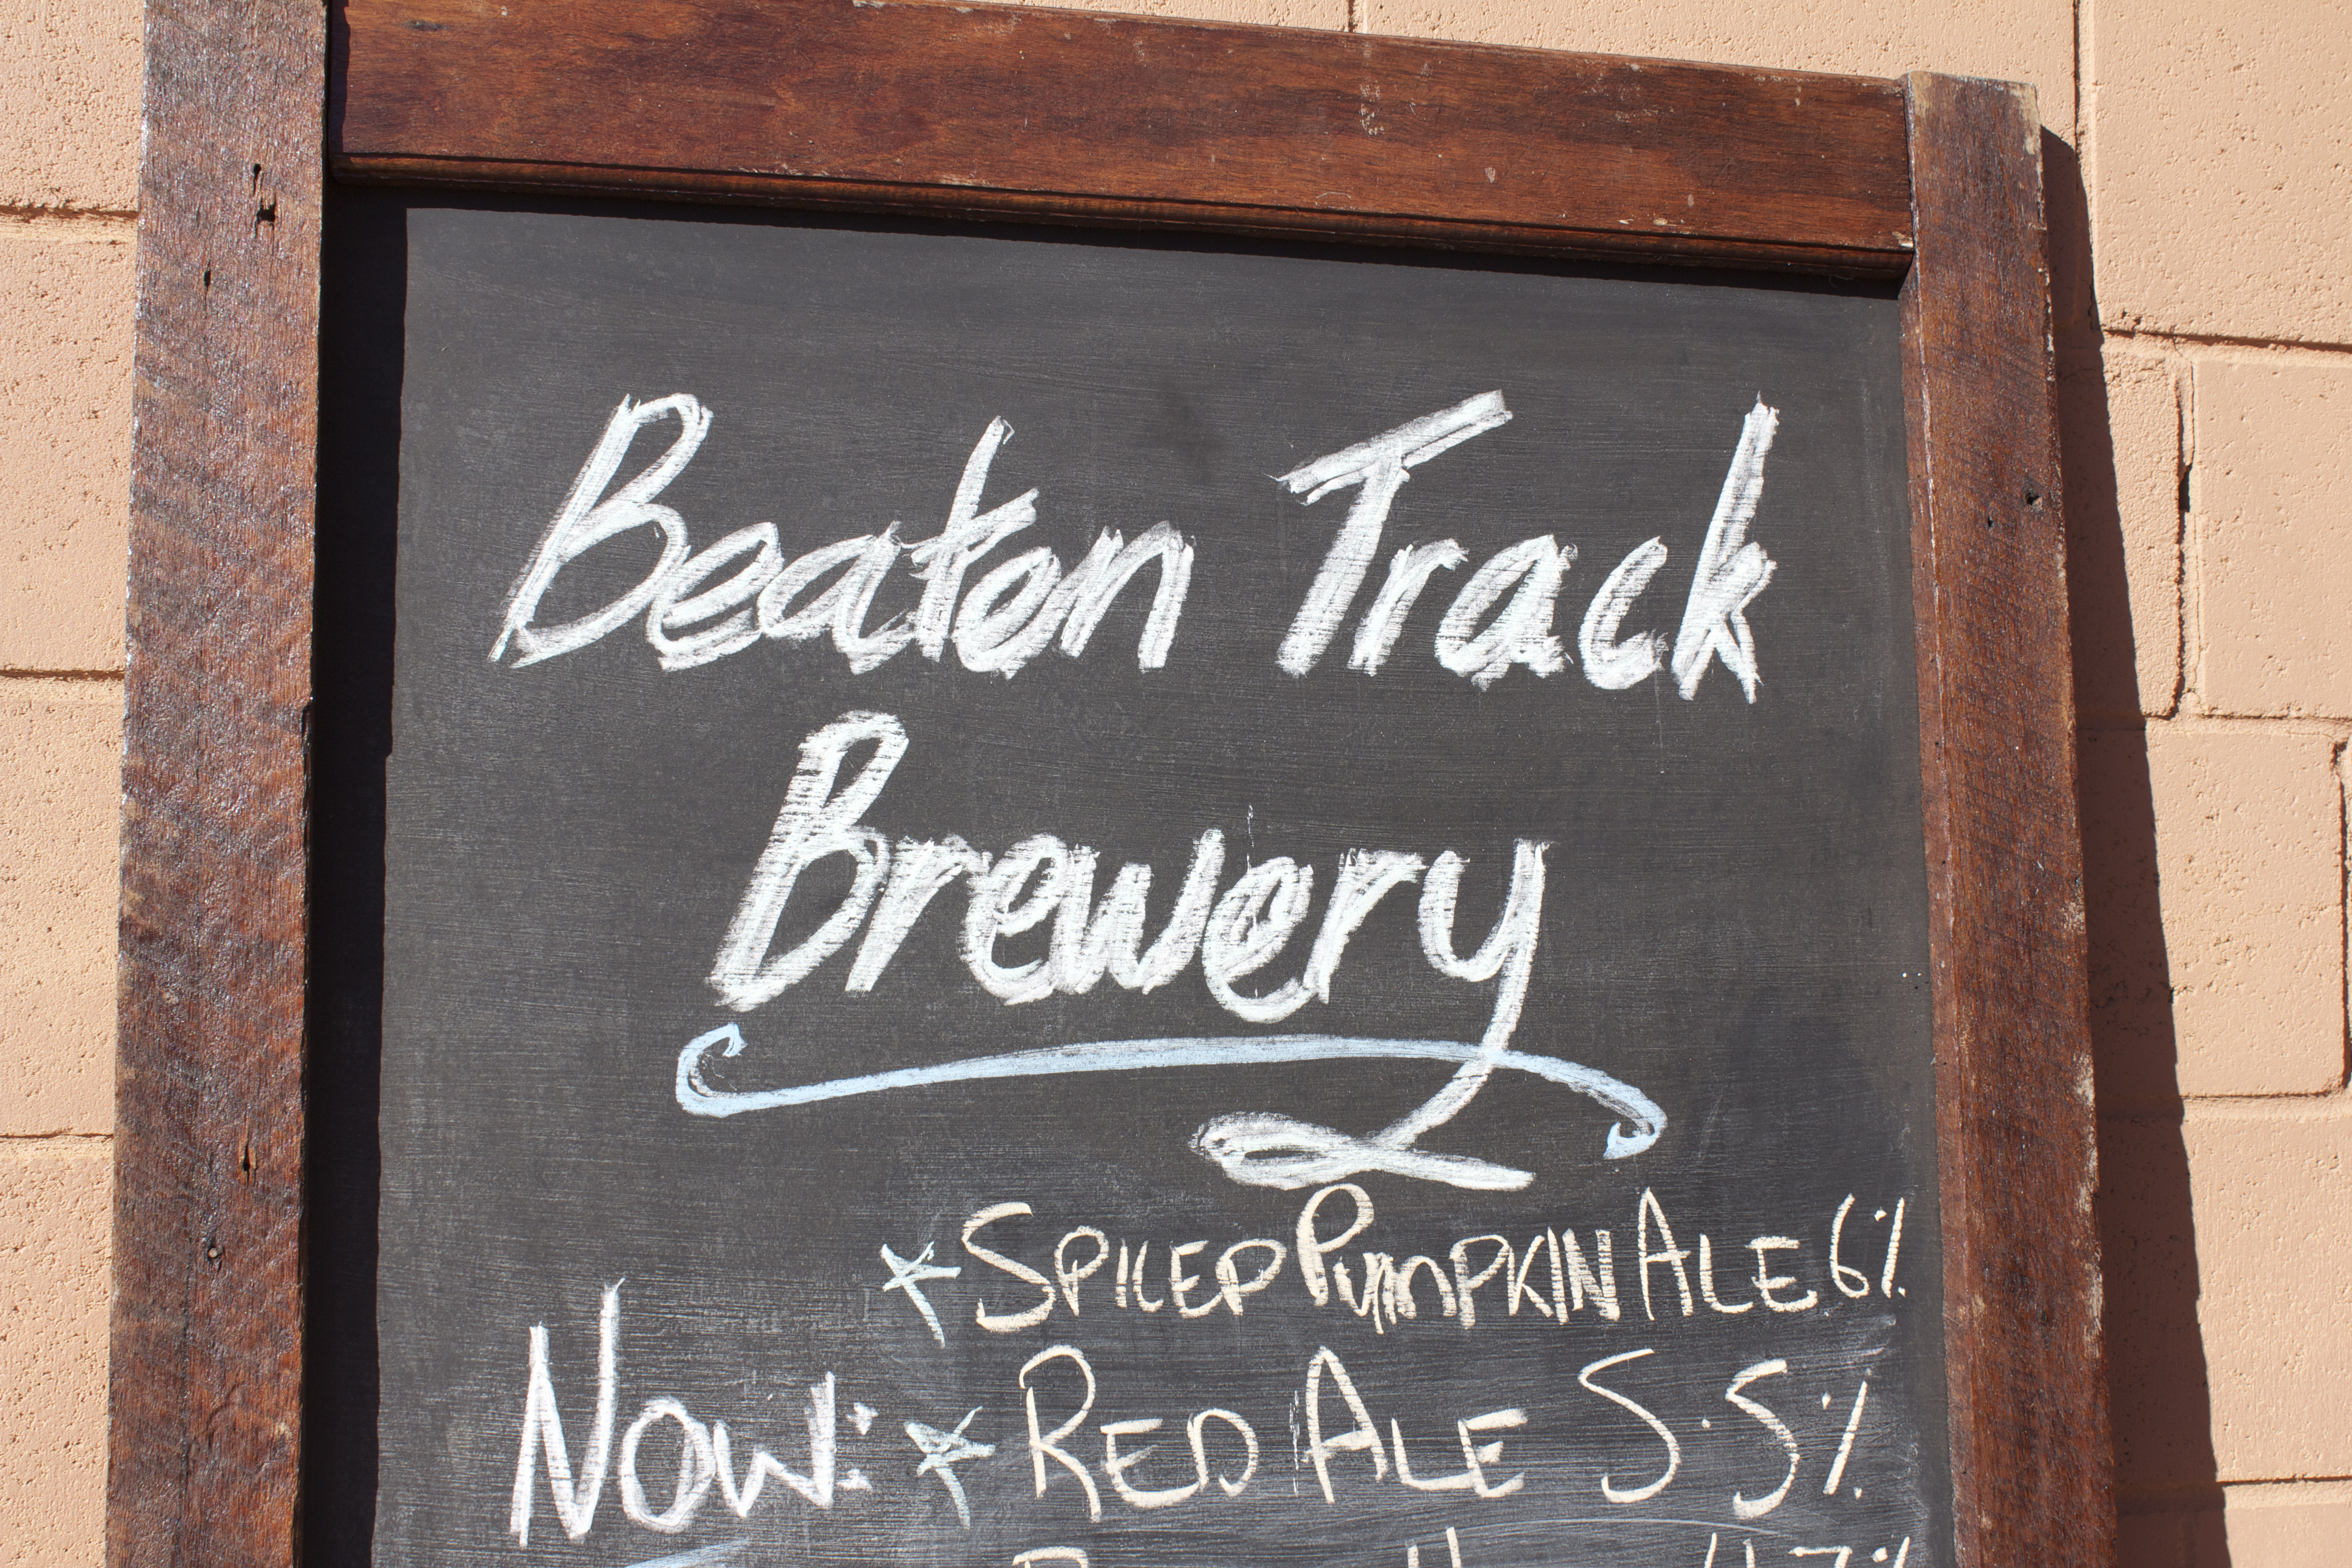 Beaton Track
Brewery
* SPICED PUMPKIN ALE 6%
NOW: * RED ALE 5.5%